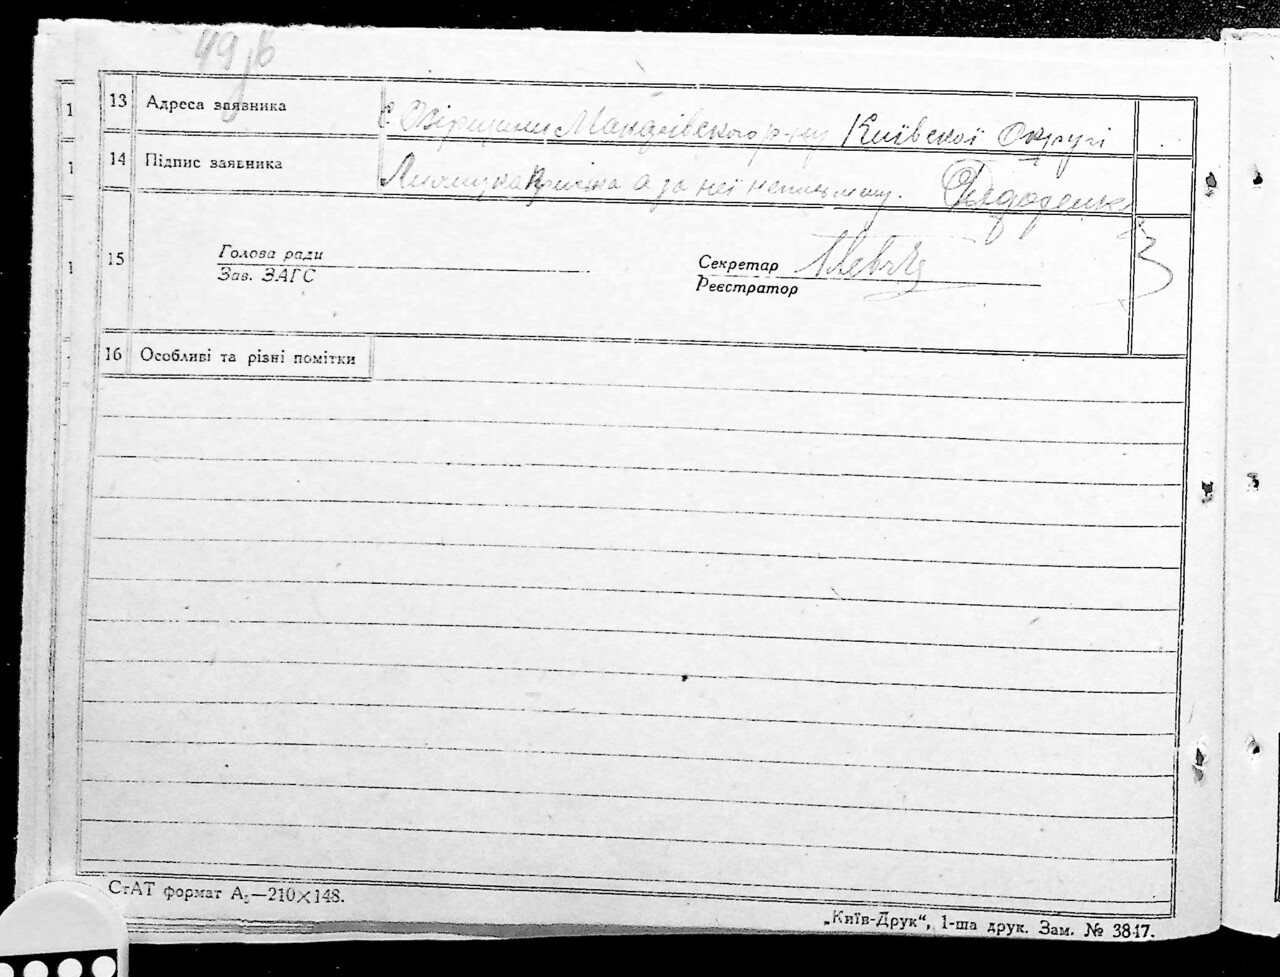 49
13 Адреса заявника с. Макарівського р-ну Київскої Округі
14 Підпис заявника а за неї неписьмену.
15 Голова ради
Зав. ЗАГС
Секретар
Реєстратор
16 Особливі та різні помітки
СтАТ формат А₅—210×148.
„Київ-Друк“, 1-ша друк. Зам. № 3847.